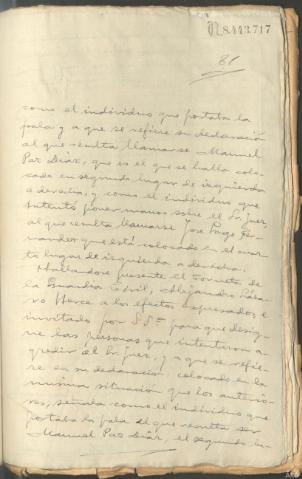 N8443.717
81
como el individuo que portaba la
pala y a que se refiere su declaración
al que resulta llamarse Manuel
Paz Diaz, que es el que se halla colo-
cado en segundo lugar de izquierda
a derecha, y como el individuo que
intentó poner manos sobre el Sr. Juez
al que resulta llamarse José Fer-
nandez que está colocado en el cuar-
to lugar de izquierda a derecha.
Hallandose presente el Corneta de
la Guardia Civil, Alejandro
Herce a los efectos expresados e
invitado por S.Sª para que desig-
ne las personas que intentaron a-
gredir al Sr. Juez, y a que se refie-
re en su declaración, colocado en la
misma situación que los anterio-
res, señala como el individuo que
portaba la pala al que resulta ser
Manuel Paz Diaz, el segundo